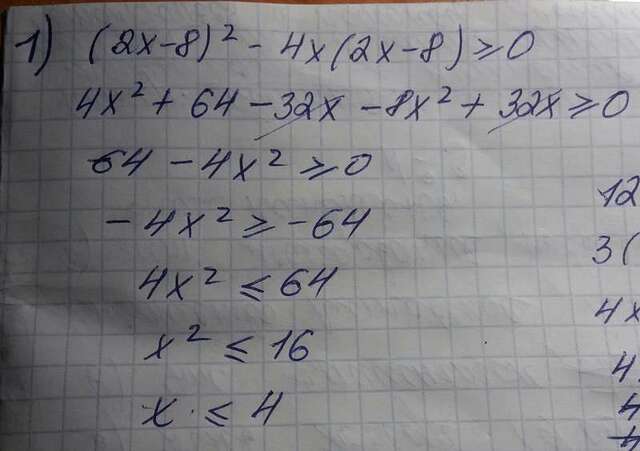 1) (2x-8)² - 4x(2x-8) ≥ 0
4x² + 64 - 32x - 8x² + 32x ≥ 0
64 - 4x² ≥ 0
- 4x² ≥ -64
4x² ≤ 64
x² ≤ 16
x ≤ 4
12
3(
4x
4.
4
4